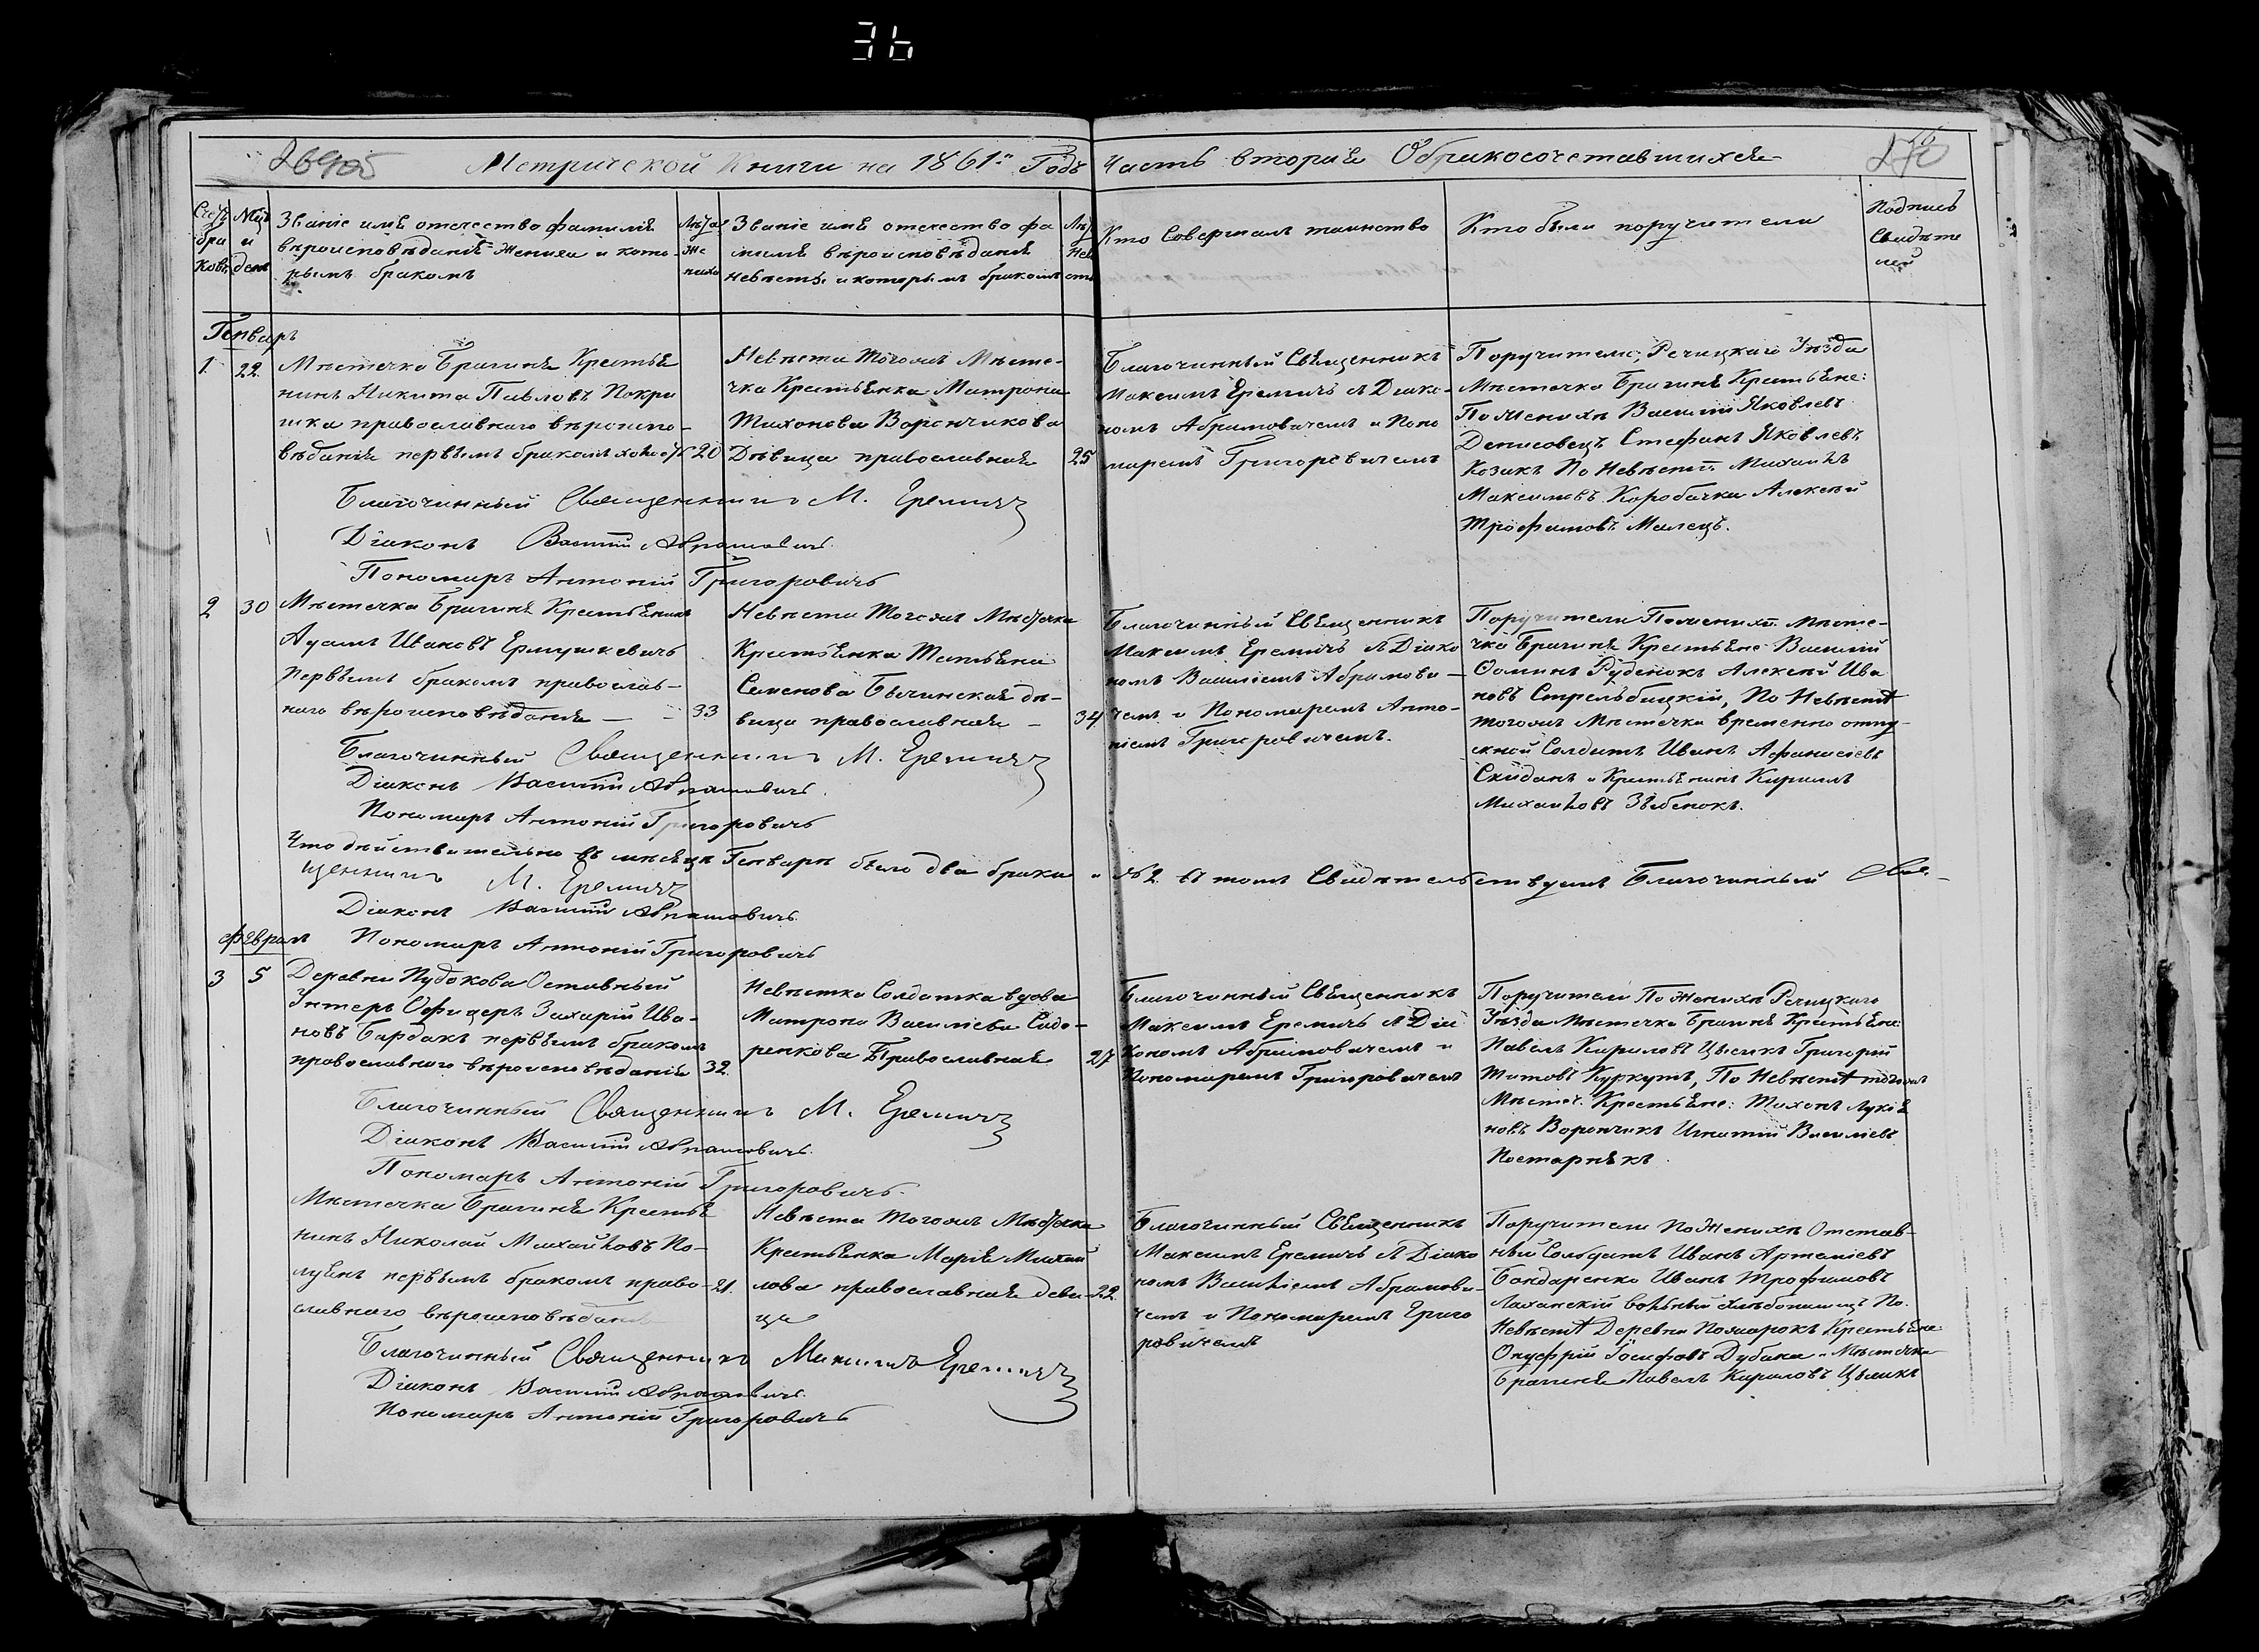 36
26905 Метрической Книги на 1861й Годъ Часть вторая О бракосочетавшихся
Счетъ браковъ
Мцъ и день
Званіе имя отечество фамилія
вѣроисповѣданіе жениха и кото-
рымъ бракомъ
Лѣта же ниха
Званіе имя отечество фа
милія вѣроисповѣданіе
невѣсты и которымъ бракомъ
Лѣта Нев
Кто Совершалъ таинство
Кто были поручители
Подпись
Свидѣте
лей
Генварь
1 22
Мѣстечка Брагиня Крестья
нинъ Никита Павловъ Покри
шка православнаго вѣроиспо-
вѣданія первымъ бракомъ 20
Невѣста тогожъ Мѣсте-
чка Крестьянка Матрона
Тихонова Ворончикова
Дѣвица православная 25
Благочинный Священникъ
Максимъ Еремичъ съ Діако-
номъ Абрамовичемъ и Поно
маремъ Григоревичемъ
Поручители: Речицкаго Уѣзда
Мѣстечка Брагиня Крестьяне:
По Женихѣ Василій Яковлевъ
Денисовецъ Стефанъ Яковлевъ
Козакъ По Невѣстѣ Михаилъ
Максимовъ Коробачка Алексѣй
Трофимовъ Малецъ.
Благочинный Священникъ М. Еремичъ
Діаконъ Василій Абрамовичъ.
Пономарь Антоній Григоровичъ
2 30
Мѣстечка Брагиня Крестьянинъ
Адамъ Ивановъ Ермушкевичъ
первымъ бракомъ православ-
наго вѣроисповѣданія — — 33
Невѣста тогожъ Мѣстечка
Крестьянка Татьяна
Семенова Бычинская дѣ-
вица православная — 34
Благочинный Священникъ
Максимъ Еремичъ съ Діако
номъ Василіемъ Абрамови-
чемъ и Пономаремъ Анто-
ніемъ Григоровичемъ.
Поручители По женихѣ Мѣсте-
чка Брагиня Крестьяне Василій
Ѳоминъ Руденокъ Алексѣй Ива
новъ Стрельбицкій, По Невѣстѣ
тогожъ Мѣстечка временно отпу-
скной Солдатъ Иванъ Афанасіевъ
Скиданъ и Крестьянинъ Кирилъ
Михайловъ Зябенокъ.
Благочинный Священникъ М. Еремичъ
Діаконъ Василій Абрамовичъ.
Пономарь Антоній Григоровичъ
Что дѣйствительно въ мѣсяцѣ Генварѣ было два брака " №2 въ томъ Свидѣтельствуемъ Благочинный Свя-
щенникъ М. Еремичъ
Діаконъ Василій Абрамовичъ
Февраль
Пономарь Антоній Григоровичъ
3 5
Деревни Пудокова Отставный
Унтеръ Офицеръ Захарій Ива-
новъ Бардакъ первымъ бракомъ
православнаго вѣроисповѣданія 32.
Невѣстка Солдатка вдова
Матрона Василіева Сидо-
ренкова Православная 27
Благочинный Священникъ
Максимъ Еремичъ съ Діа
кономъ Абрамовичемъ и
Пономаремъ Григоровичемъ
Поручители По Женихѣ Речицкаго
Уѣзда Мѣстечка Брагиня Крестьяне:
Павелъ Кириловъ Цысикъ Григорій
Титовъ Куркутъ, По Невѣстѣ тогожъ
Мѣстеч. Крестьяне: Тихонъ Лукія
новъ Ворончикъ Игнатій Василіевъ
Постарнякъ.
Благочинный Священникъ М. Еремичъ
Діаконъ Василій Абрамовичъ.
Пономарь Антоній Григоровичъ.
Мѣстечка Брагиня Крестья
нинъ Николай Михайловъ По-
луянъ первымъ бракомъ право- 21.
славнаго вѣроисповѣданія
Невѣста тогожъ Мѣстечка
Крестьянка Марія Михай
лова православная деви- 22
ца
Благочинный Священникъ
Максимъ Еремичъ съ Діако
номъ Василіемъ Абрамови-
чемъ и Пономаремъ Григо
ровичемъ
Поручители По Женихѣ Отстав-
ный Солдатъ Иванъ Артеміевъ
Бондаренко Иванъ Трофимовъ
Лаханскій вольный хлѣбопашецъ По
Невѣстѣ Деревни Пожарокъ Крестьяне
Онуфрій Іосифовъ Дубака и Мѣстечка
Брагиня Павелъ Кириловъ Цысикъ
Благочинный Священникъ Максимъ Еремичъ
Діаконъ Василій Абрамовичъ.
Пономарь Антоній Григоровичъ